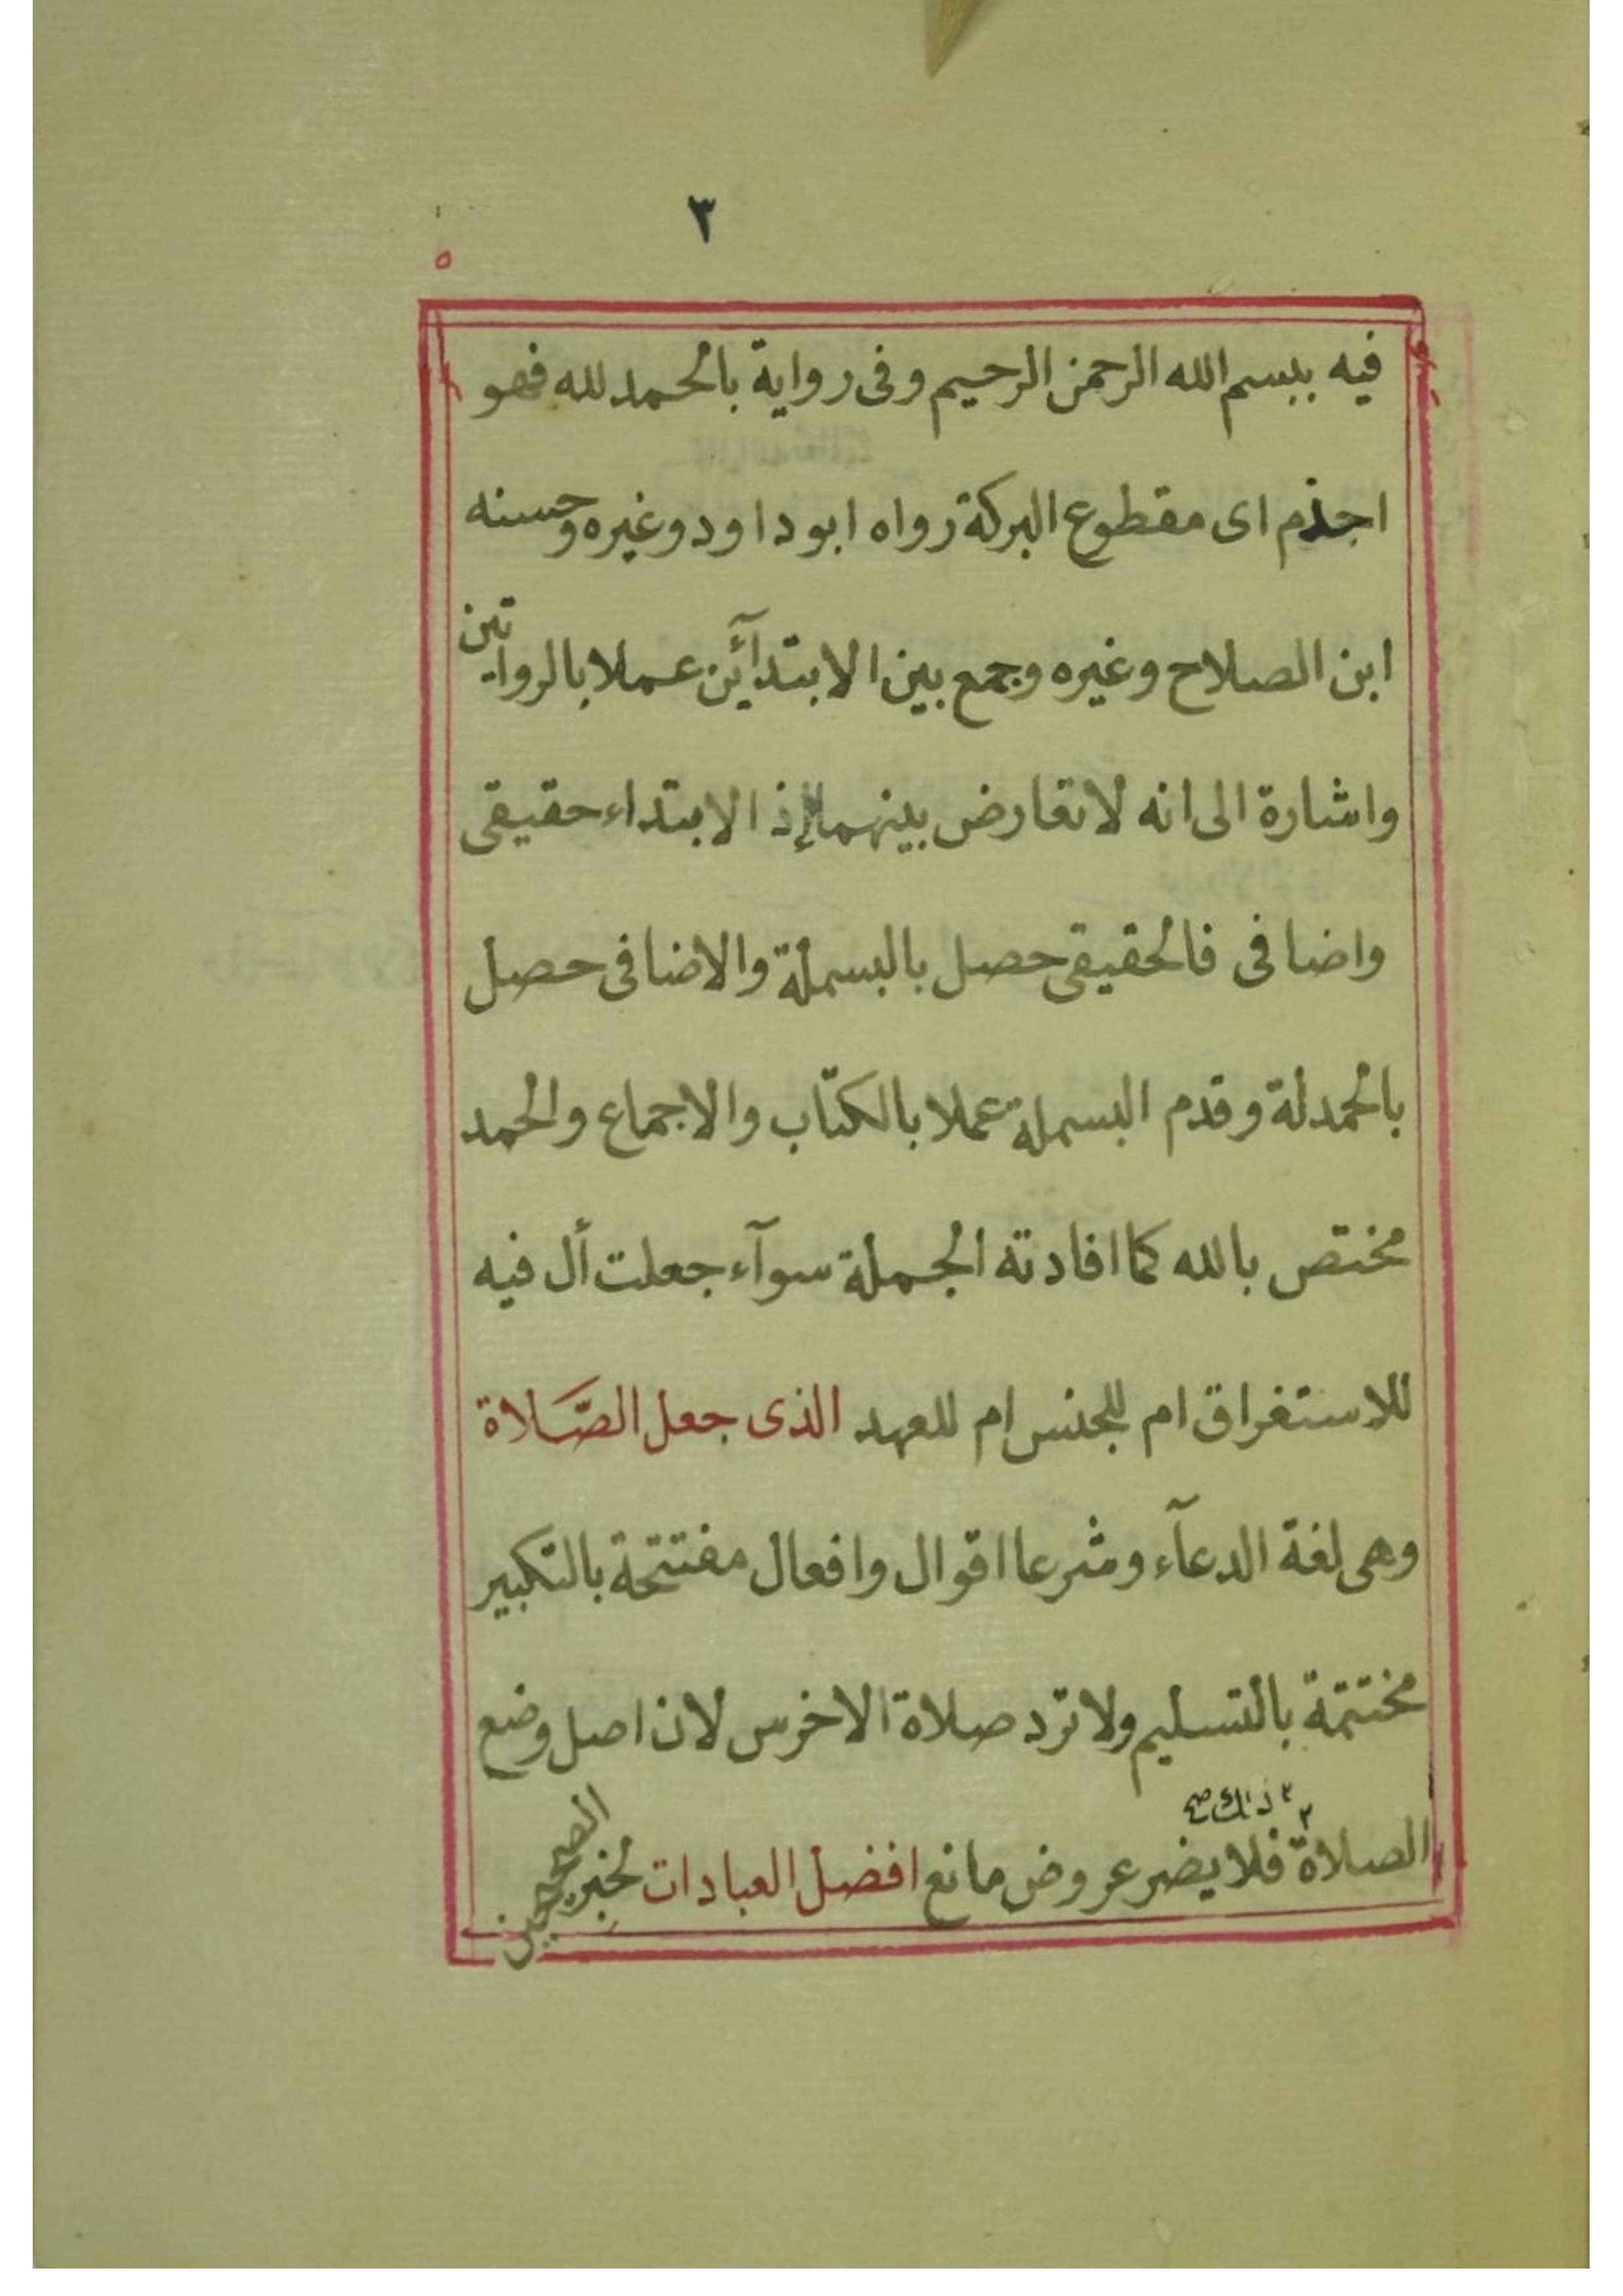 ٣
٥
فيه ببسم الله الرحمن الرحيم وفى رواية بالحمد لله فهو
اجذم اى مقطوع البركة رواه ابو داود وغيره وحسنه
ابن الصلاح وغيره وجمع بين الابتدآئين عملا بالروايتين
واشارة الى انه لا تعارض بينهما إذ الابتداء حقيقى
واضافى فالحقيقى حصل بالبسملة والاضافى حصل
بالحمدلة وقدم البسملة عملا بالكتاب والاجماع والحمد
مختص بالله كما افادته الجملة سوآء جعلت أل فيه
للاستغراق ام للجنس ام للعهد الذى جعل الصَّلاة
وهى لغة الدعآء وشرعا اقوال وافعال مفتتحة بالتكبير
مختتمة بالتسليم ولا ترد صلاة الاخرس لان اصل وضع
٢ ذلك صح
الصلاة ٢ فلا يضر عروض مانع افضل العبادات لخبر الصحيحين